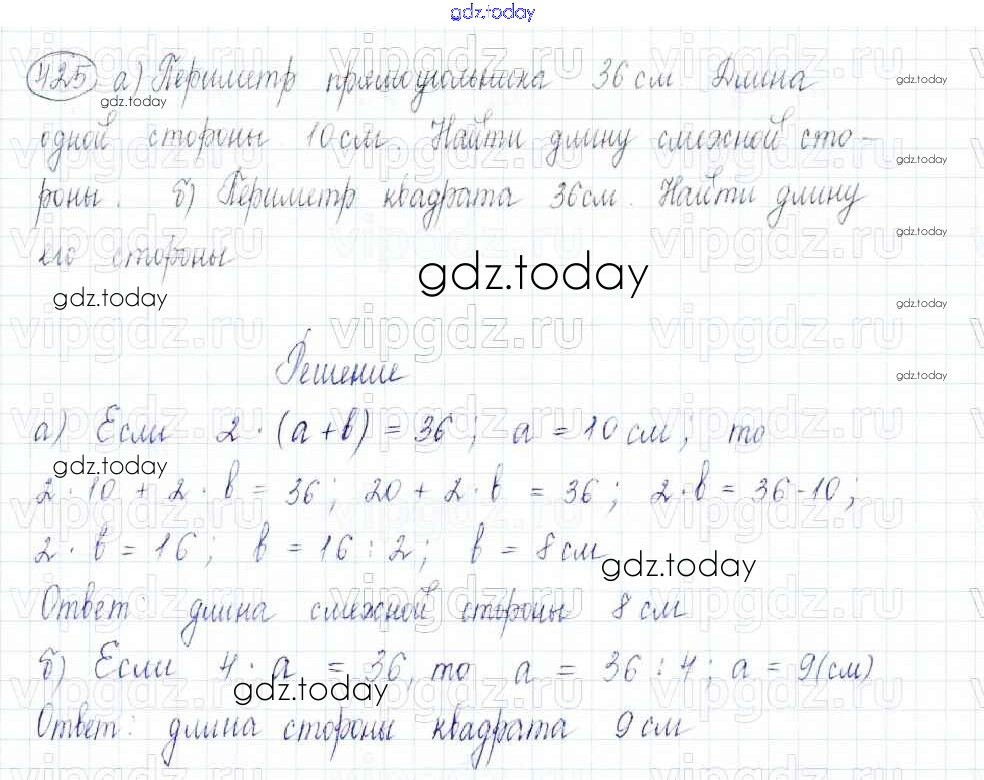 gdz.today
425 а) Периметр прямоугольника 36 см. Длина
gdz.today
gdz.today
одной стороны 10 см. Найти длину смежной сто-
gdz.today
роны. б) Периметр квадрата 36 см. Найти длину
gdz.today
его стороны
gdz.today
gdz.today
gdz.today
Решение
gdz.today
а) Если 2 · (а + в) = 36 ; а = 10 см ; то
gdz.today
2 · 10 + 2 · в = 36 ; 20 + 2 · в = 36 ; 2 · в = 36 - 10 ;
2 · в = 16 ; в = 16 : 2 ; в = 8 см
gdz.today
Ответ: длина смежной стороны 8 см
б) Если 4 · а = 36, то а = 36 : 4 ; а = 9 (см)
gdz.today
Ответ: длина стороны квадрата 9 см
vipgdz.ru